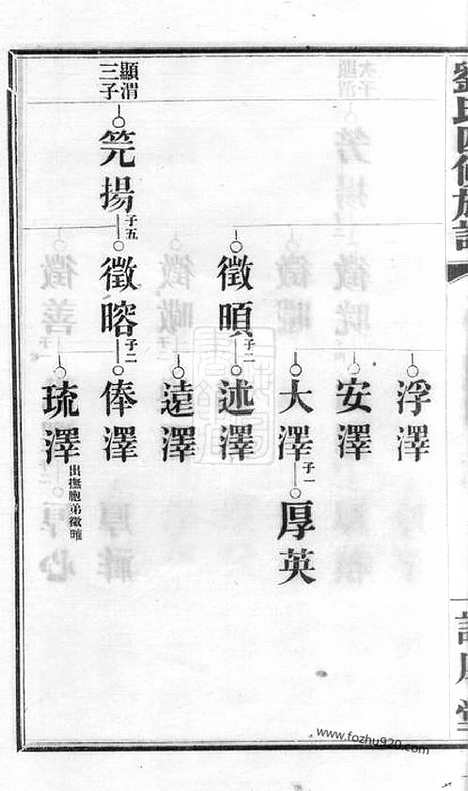 劉氏四修族譜
浮澤
安澤
大澤 子一 厚英
徵暊 子二 述澤
遠澤
顯渭
三子 筦揚 子五 徵 子二 俸澤
琉澤 出撫胞弟徵
www.fozhu920.com